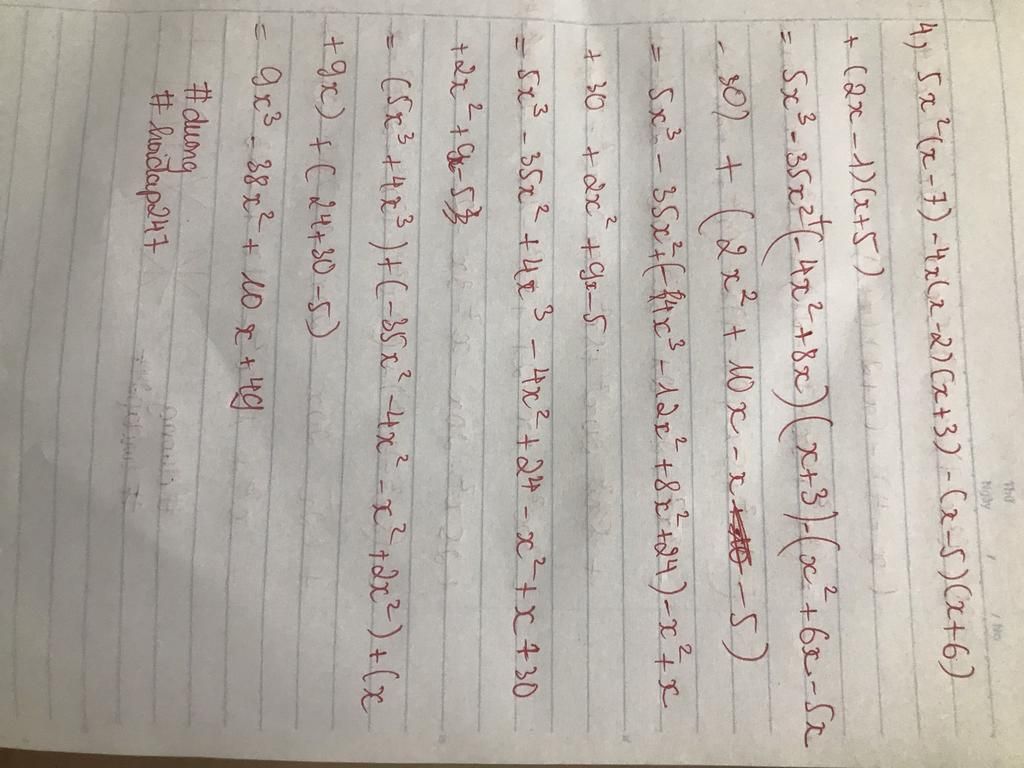 Thứ
Ngày / / No
4) 5x²(x-7) - 4x(x-2)(x+3) - (x-5)(x+6)
+ (2x-1)(x+5)
= 5x³ - 35x² + (-4x² + 8x)(x+3) - (x² + 6x - 5x
- 30) + (2x² + 10x - x - 5)
= 5x³ - 35x² + (-4x³ - 12x² + 8x² + 24) - x² + x
+ 30 + 2x² + 9x - 5
= 5x³ - 35x² + 4x³ - 4x² + 24 - x² + x + 30
+ 2x² + 9x - 5
= (5x³ + 4x³) + (-35x² - 4x² - x² + 2x²) + (x
+ 9x) + (24 + 30 - 5)
= 9x³ - 38x² + 10x + 49
#dung
#hoidap247